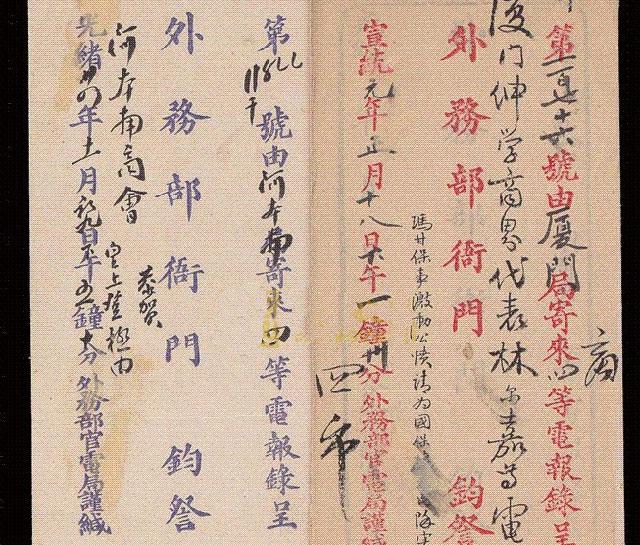 第一百七十六號由厦門局寄來四等電報錄呈
商
厦门绅学商界代表林尔嘉等電
外務部衙門 鈞詧
瑪甘保事激動公憤請为國保
宣統元年正月十八日午一鐘卅分外務部官電局謹緘
四
第 號由河本 寄來四等電報錄呈
外務部衙門 鈞詧
恭賀
皇上登極由
河本 商會
光緒卅四年十一月初九日午 鐘十分外務部官電局謹緘